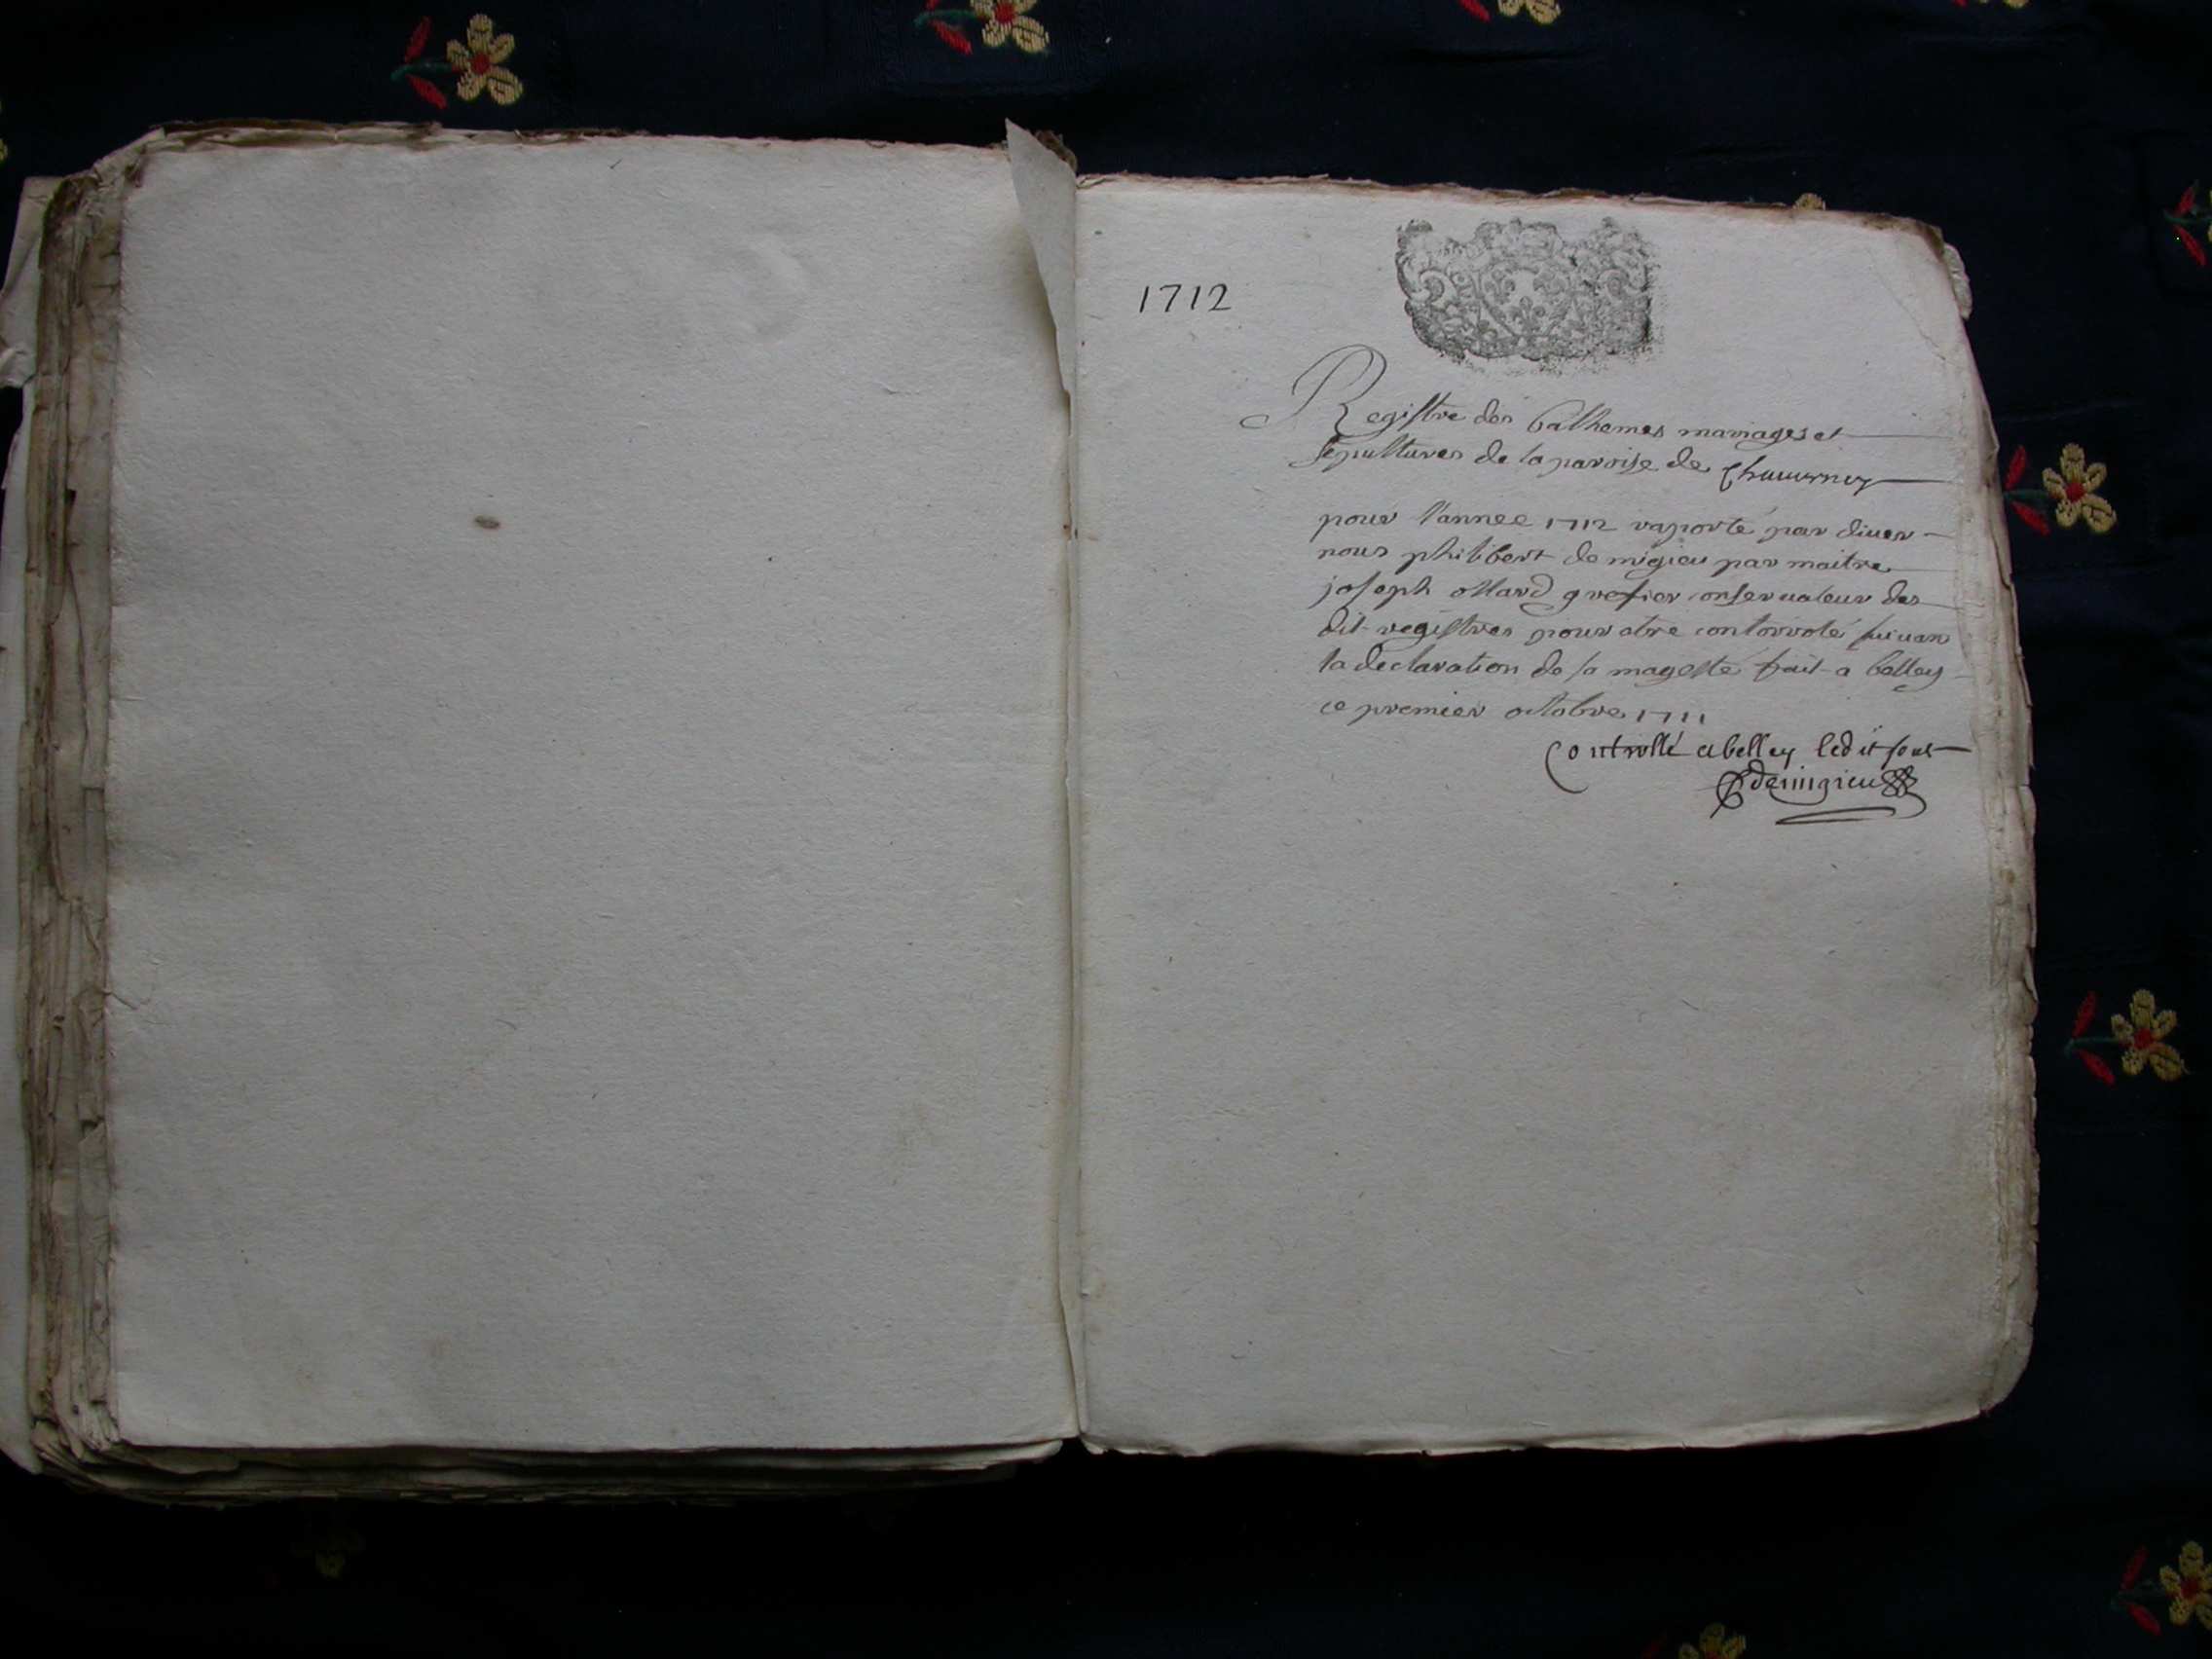 1712
Registre des bathemes mariages et
sepultures de la paroise de Chavornay
pour l'annee 1712 raporté par diver
nous philibert de migieu par maitre
joseph ollard grefier conservateur des
dit registres pour etre contorrolé suivan
la declaration de sa magesté fait a belley
ce premier octobre 1711
Controllé a belley ledit jour
demigieu